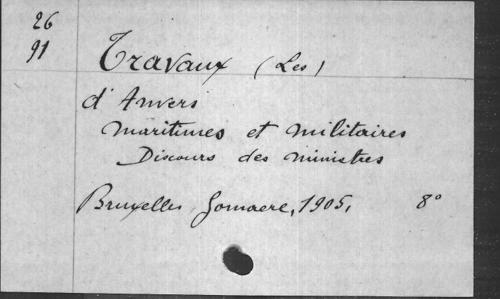 26
91
Travaux (Les)
d'Anvers
maritimes et militaires
Discours des ministres
Bruxelles Gomaere, 1905, 8°